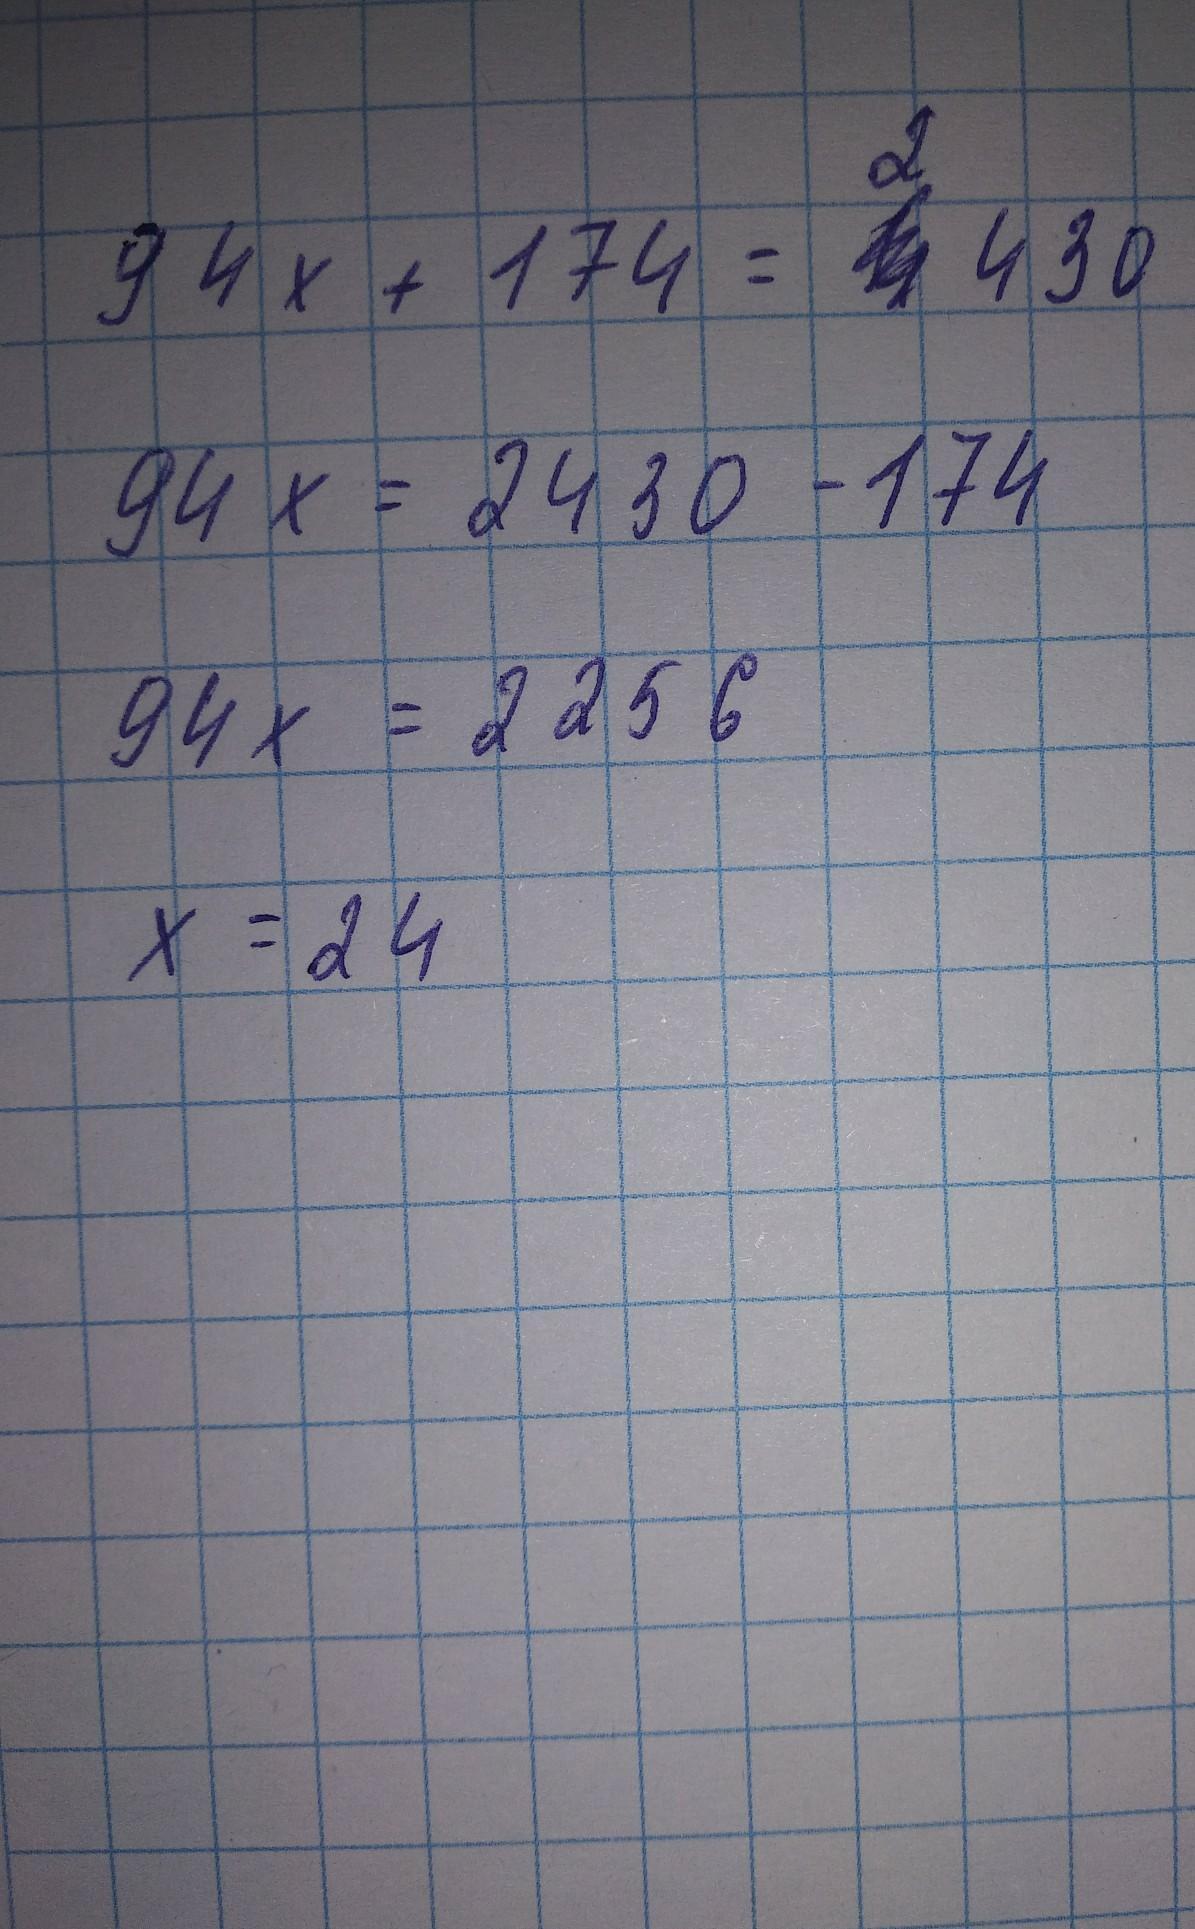 94x + 174 = 2430
94x = 2430 - 174
94x = 2256
x = 24